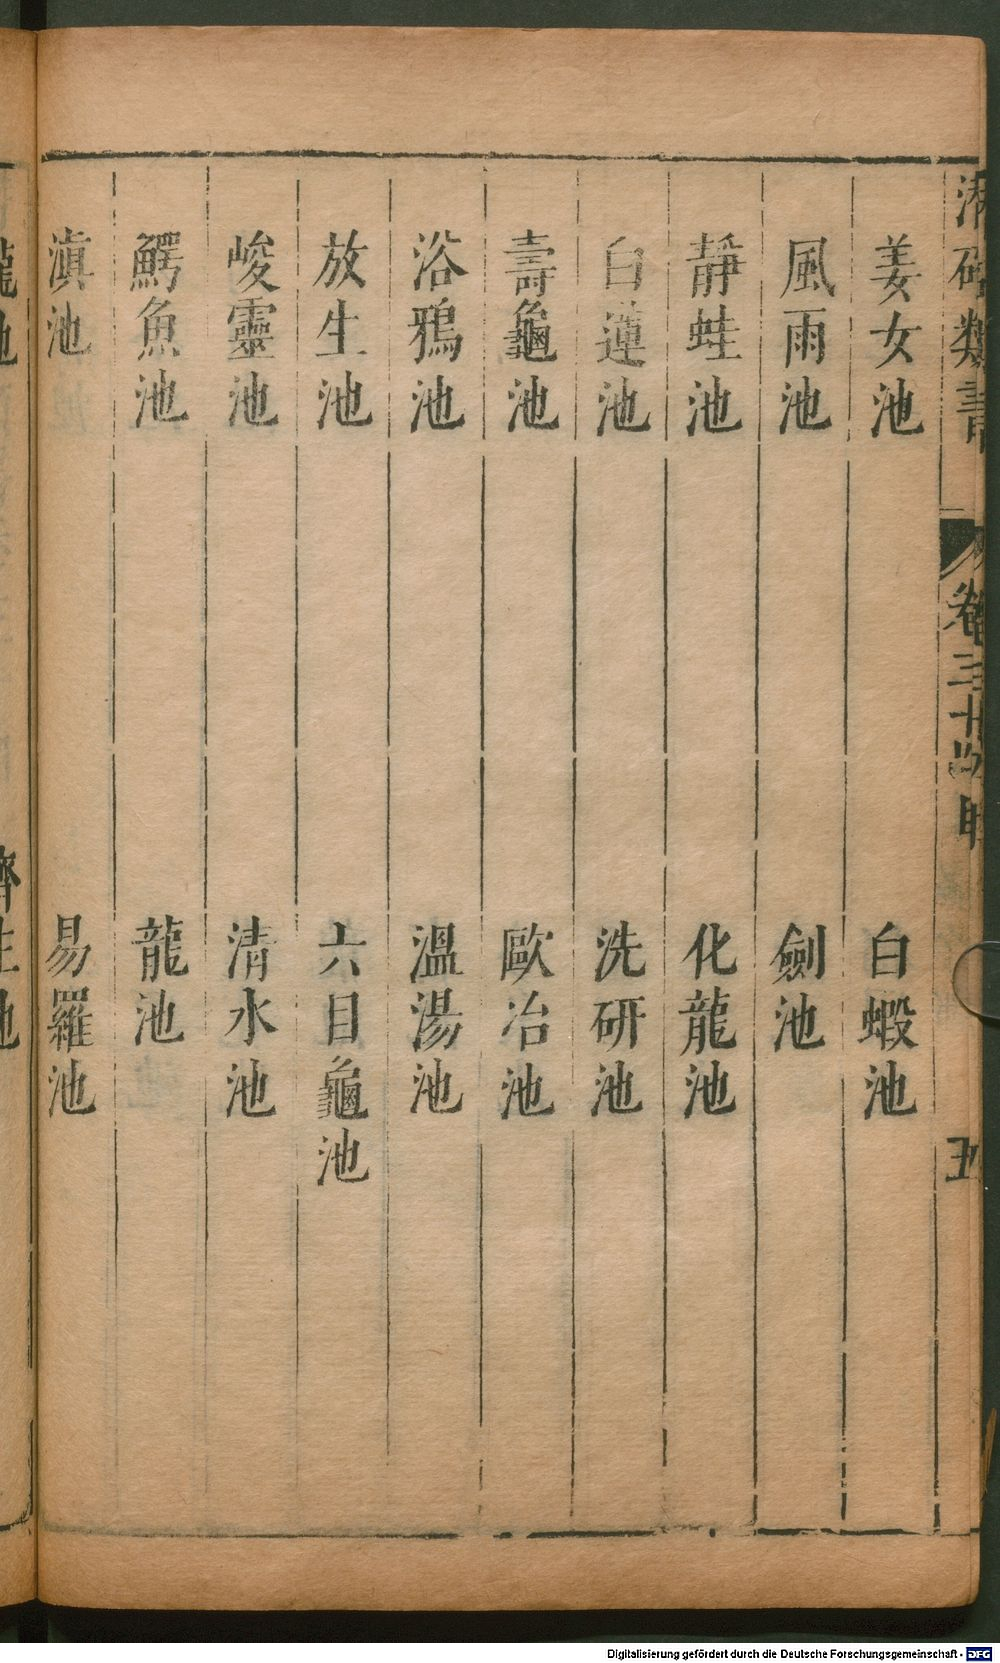 潛確類書
卷三十
五
姜女池
白蝦池
風雨池
劍池
靜蛙池
化龍池
白蓮池
洗研池
壽龜池
歐冶池
浴鴉池
溫湯池
放生池
六目龜池
峻靈池
清水池
鱷魚池
龍池
滇池
易羅池
Digitalisierung gefördert durch die Deutsche Forschungsgemeinschaft - DFG